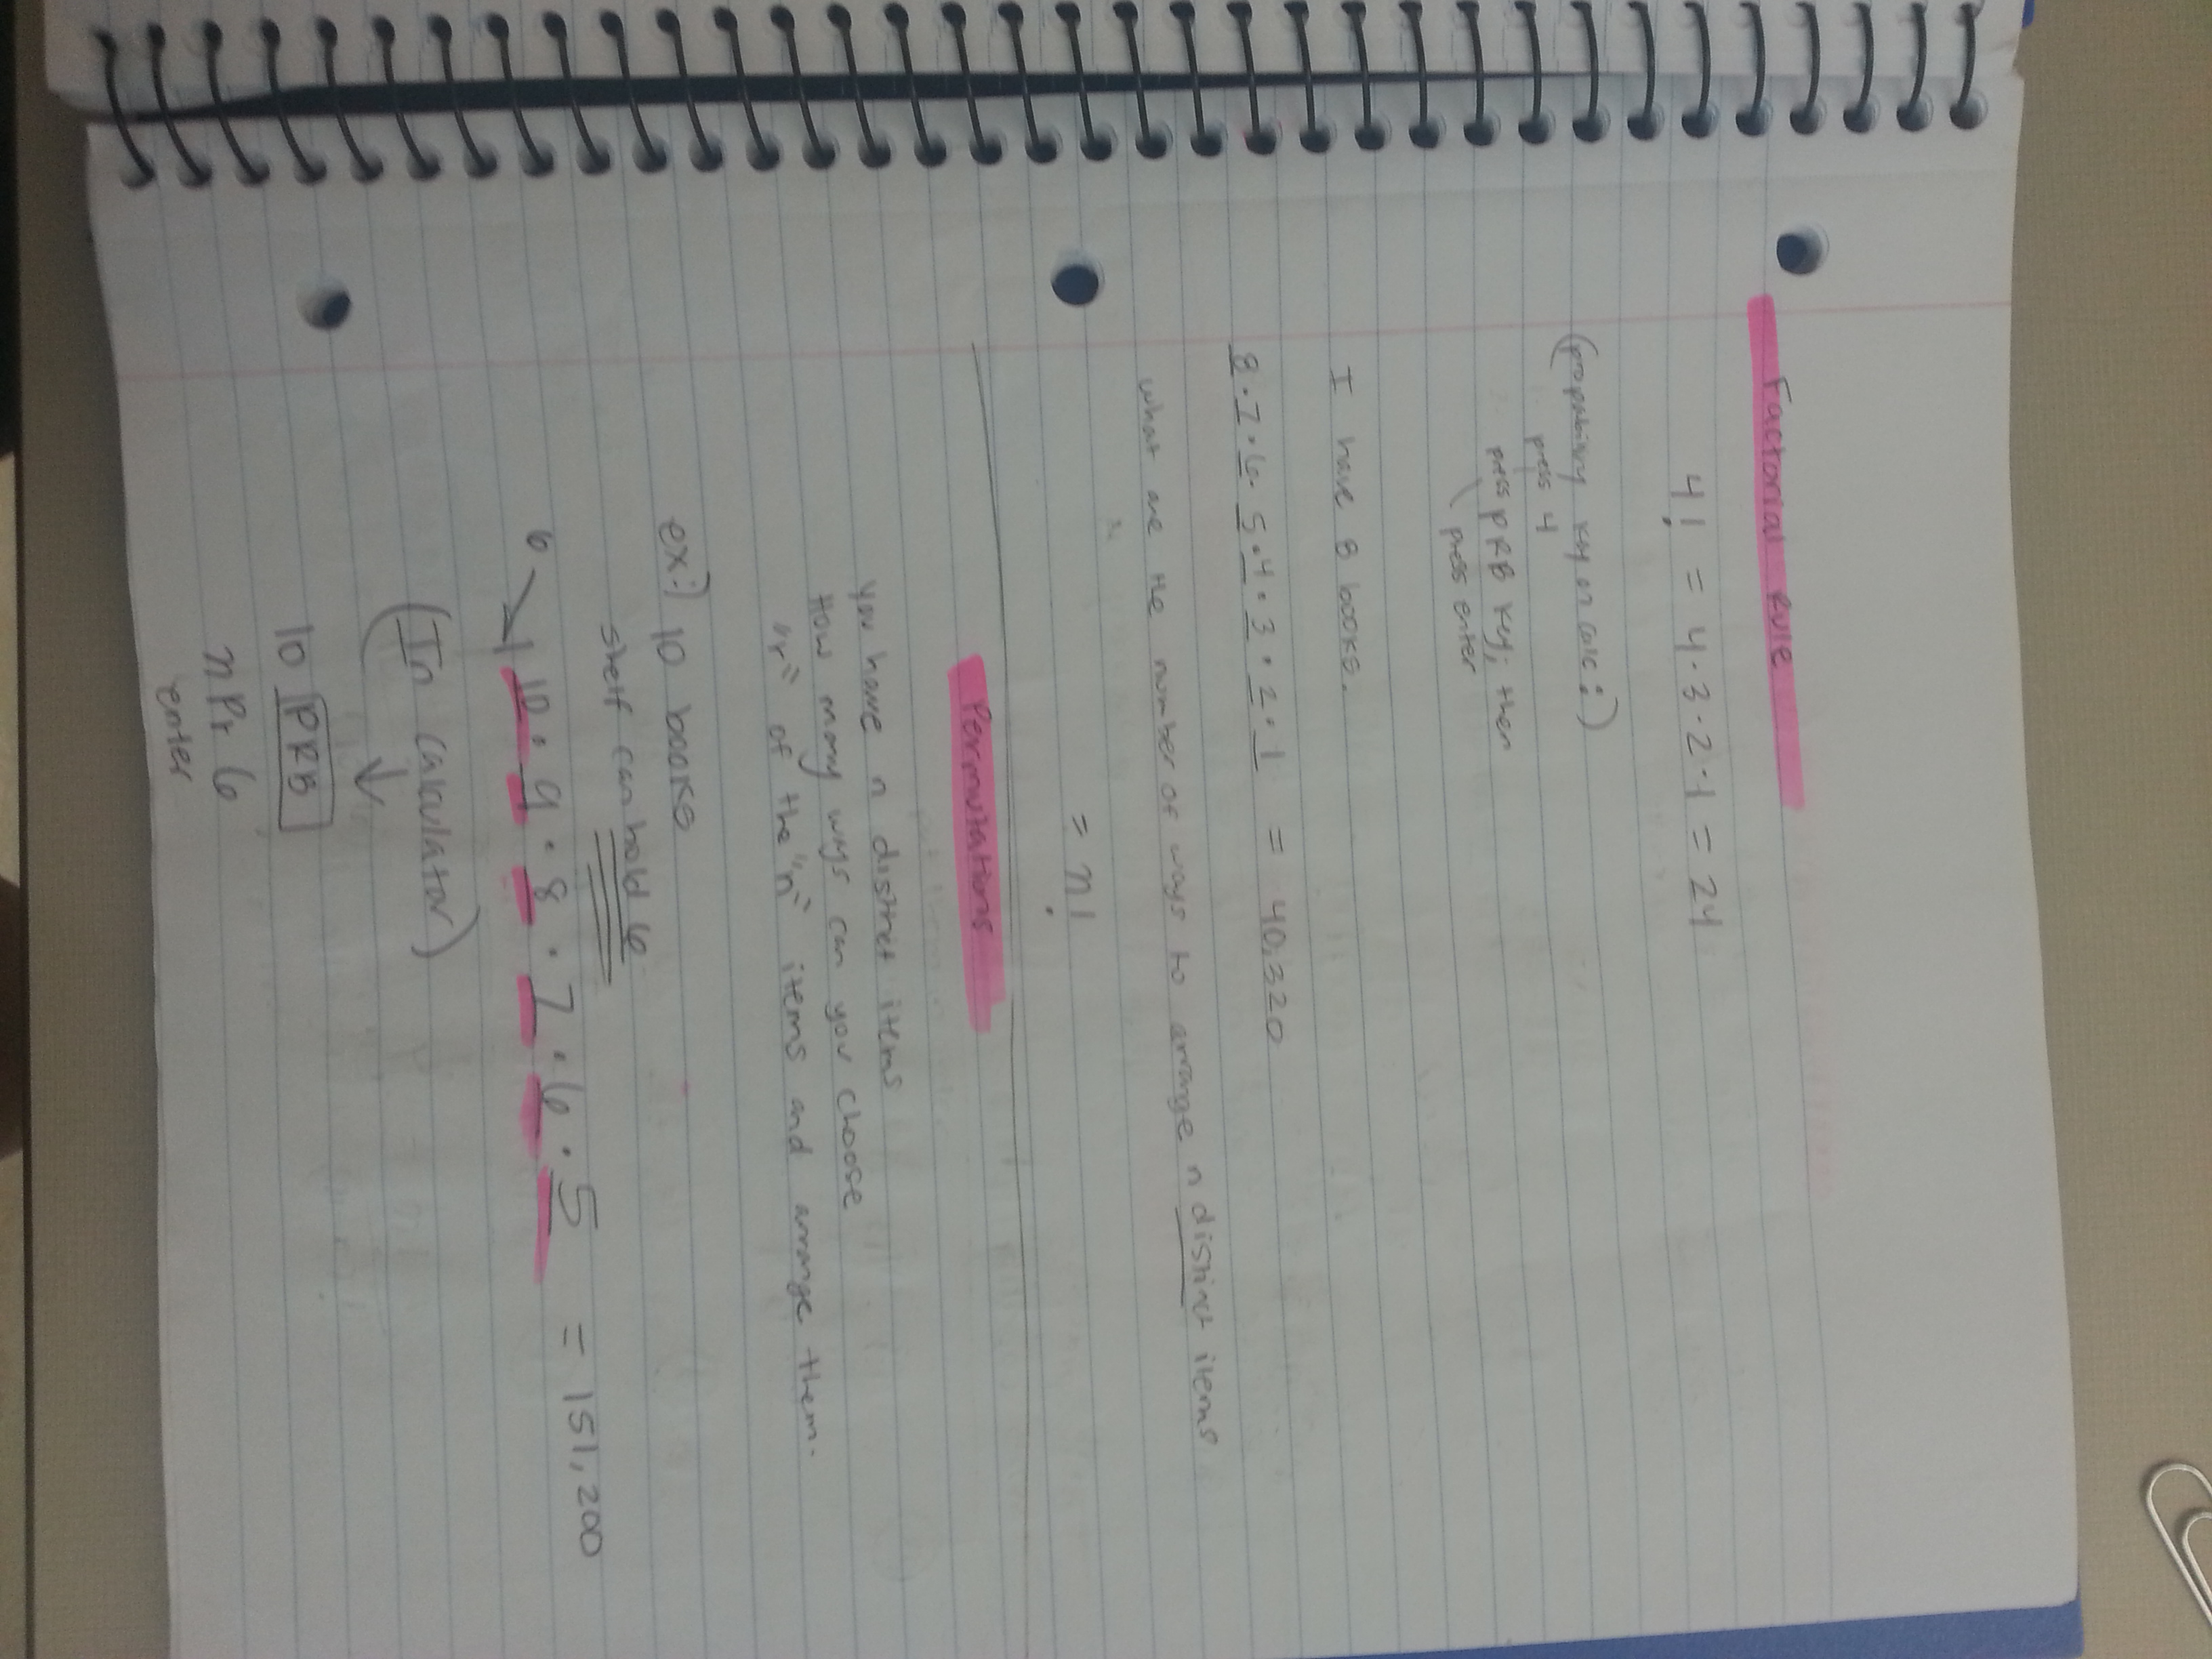 Factorial Rule
4! = 4·3·2·1 = 24
(probability key on calc:)
press 4
press PRB key; then
press enter
I have 8 books.
8·7·6·5·4·3·2·1 = 40,320
what are the number of ways to arrange n distinct items
= n!
Permutations
you have n distinct items
How many ways can you choose
"r" of the "n" items and arrange them.
ex:) 10 books
shelf can hold 6
6 → 10·9·8·7·6·5 = 151,200
(In calculator)
↓
10 PRB
nPr 6
enter